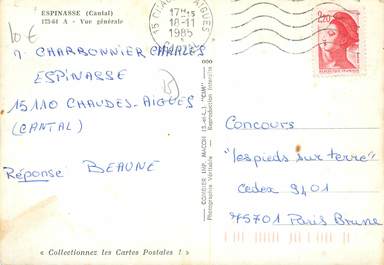 ESPINASSE (Cantal)
125-64 A - Vue générale
10 €
15 CHAUDES AIGUES
17H15
18-11
1985
2,20
M. CHARBONNIER CHARLES
ESPINASSE
15110 CHAUDES-AIGUES
(CANTAL)
15
Réponse BEAUNE
COMBIER IMP. MACON (S.-et-L.) "CIM"
Photographie Véritable - Reproduction Interdite
Concours
"les pieds sur terre"
Cedex 3401
75701 Paris Brune
« Collectionnez les Cartes Postales ! »